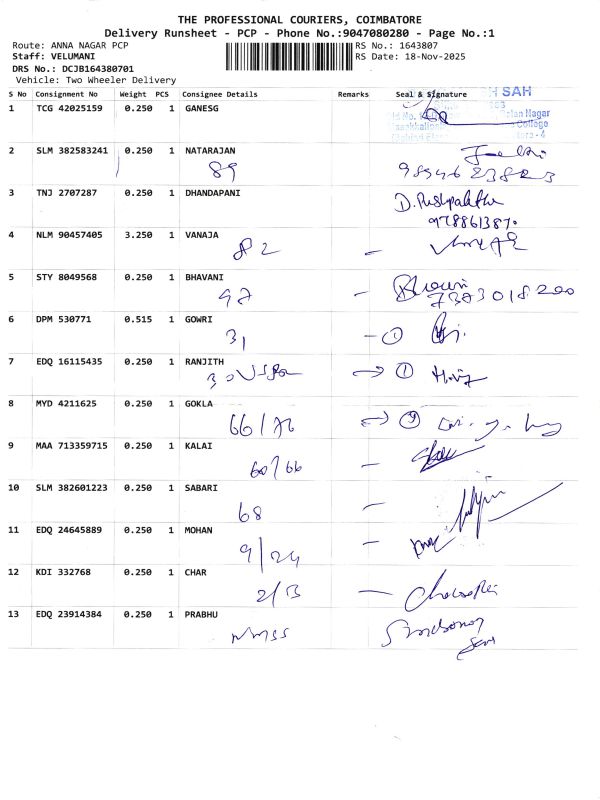 THE PROFESSIONAL COURIERS, COIMBATORE
Delivery Runsheet - PCP - Phone No.:9047080280 - Page No.:1
Route: ANNA NAGAR PCP RS No.: 1643807
Staff: VELUMANI RS Date: 18-Nov-2025
DRS No.: DCJB164380701
Vehicle: Two Wheeler Delivery
S No Consignment No Weight PCS Consignee Details Remarks Seal & Signature
SAH
1 TCG 42025159 0.250 1 GANESG
Nagar
College
2 SLM 382583241 0.250 1 NATARAJAN
89
3 TNJ 2707287 0.250 1 DHANDAPANI
4 NLM 90457405 3.250 1 VANAJA
82
5 STY 8049568 0.250 1 BHAVANI
97 7373018200
6 DPM 530771 0.515 1 GOWRI
31
7 EDQ 16115435 0.250 1 RANJITH
8 MYD 4211625 0.250 1 GOKLA
66/76
9 MAA 713359715 0.250 1 KALAI
60/66
10 SLM 382601223 0.250 1 SABARI
68
11 EDQ 24645889 0.250 1 MOHAN
9/24
12 KDI 332768 0.250 1 CHAR
2/13
13 EDQ 23914384 0.250 1 PRABHU